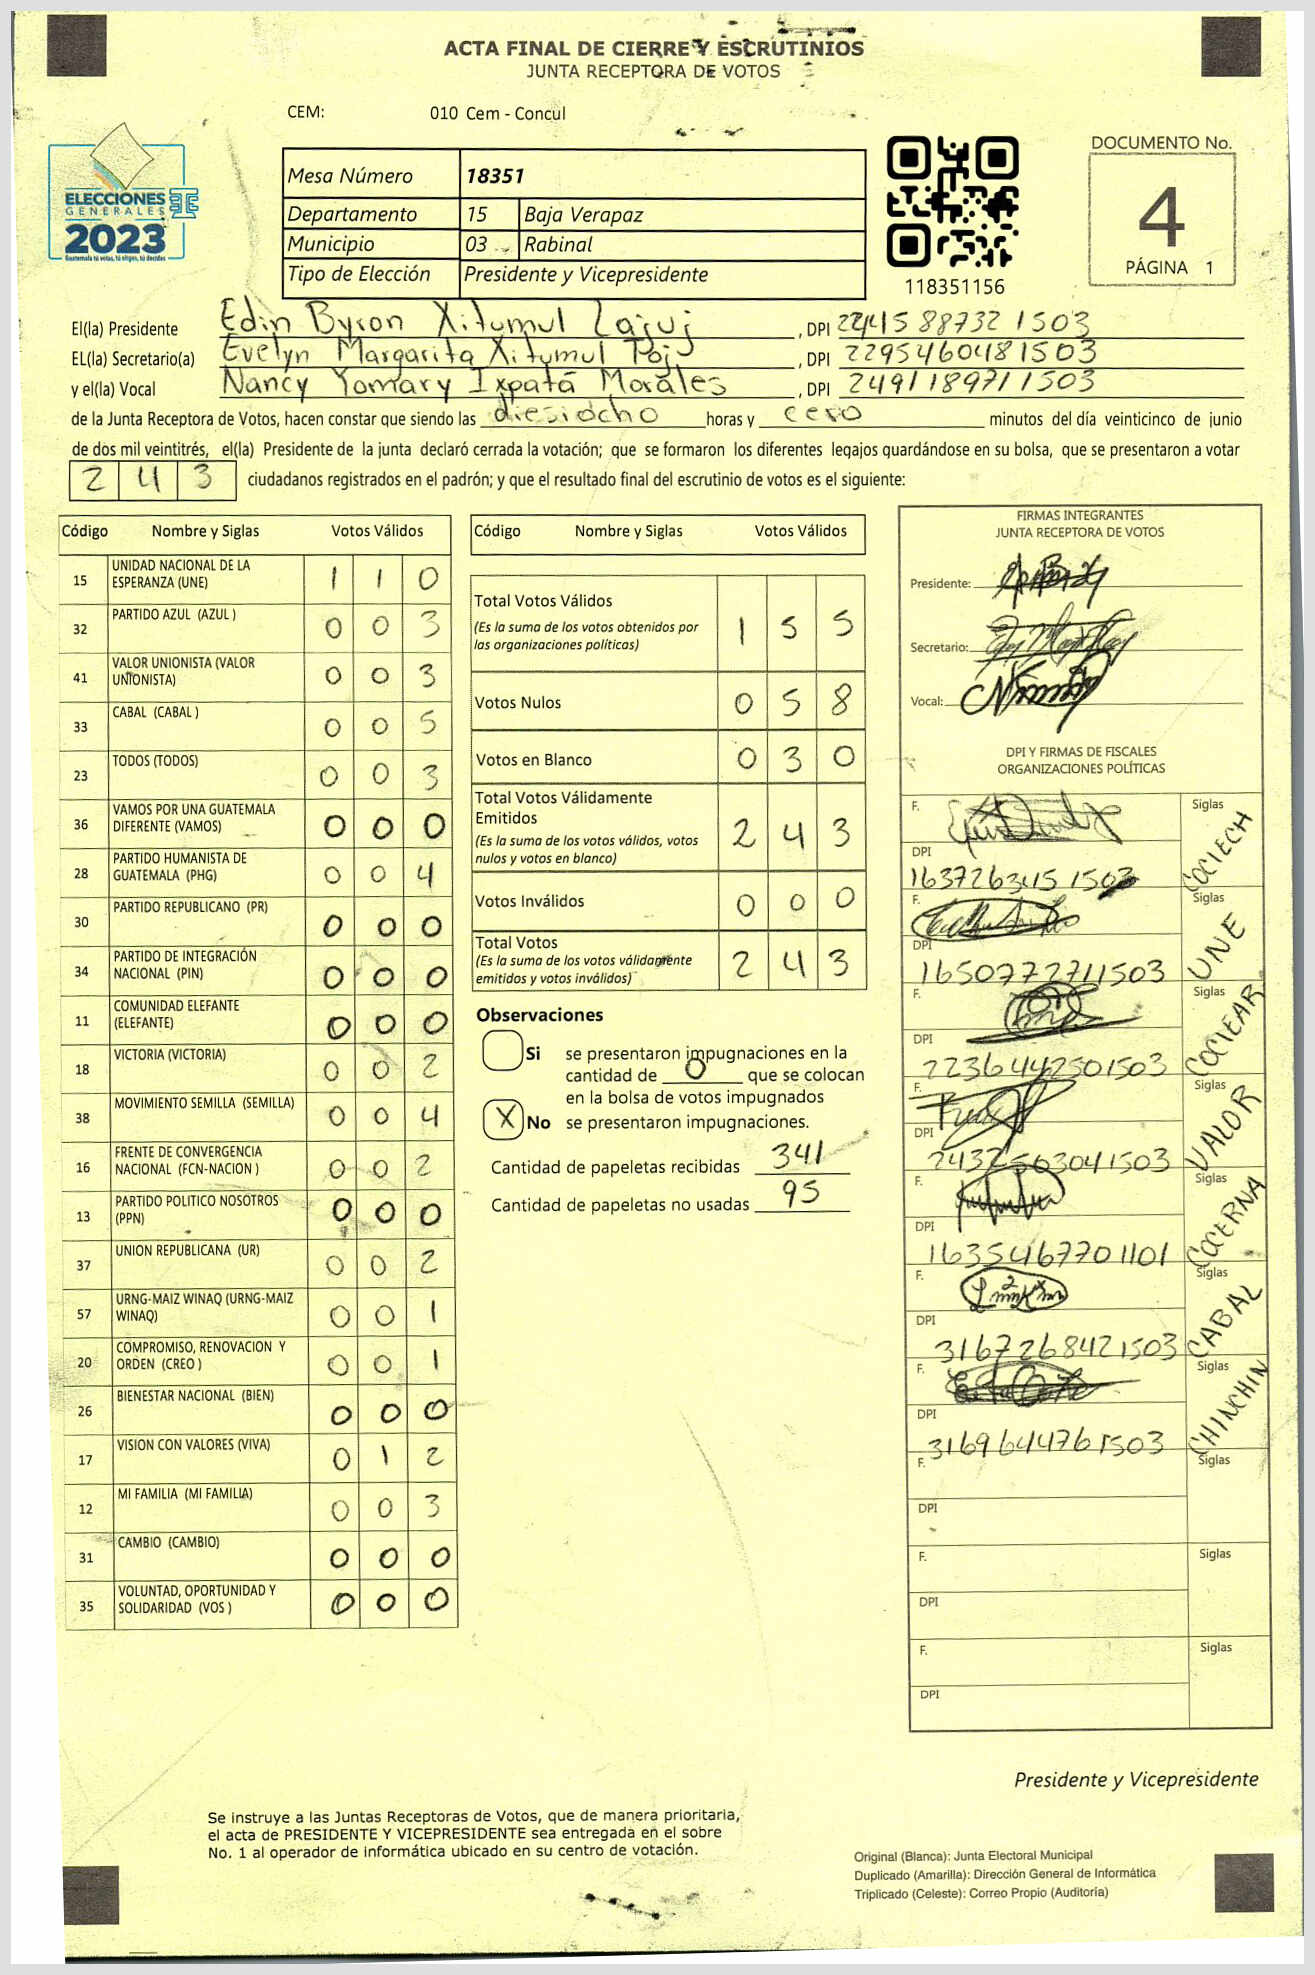 ACTA FINAL DE CIERRE Y ESCRUTINIOS
JUNTA RECEPTORA DE VOTOS
CEM: 010 Cem - Concul
DOCUMENTO No.
4
PÁGINA 1
ELECCIONES
GENERALES
2023
Guatemala tú votas, tú eliges, tú decides
Mesa Número 18351
Departamento 15 Baja Verapaz
Municipio 03 Rabinal
Tipo de Elección Presidente y Vicepresidente
118351156
El(la) Presidente Edin Byron Xitumul Lajuj, DPI 2245 88732 1503
EL(la) Secretario(a) Evelyn Margarita Xitumul Poj, DPI 2295460481503
y el(la) Vocal Nancy Yomary Ixpatá Morales, DPI 2491189711503
de la Junta Receptora de Votos, hacen constar que siendo las diesiocho horas y cero minutos del día veinticinco de junio
de dos mil veintitrés, el(la) Presidente de la junta declaró cerrada la votación; que se formaron los diferentes legajos guardándose en su bolsa, que se presentaron a votar
2 4 3 ciudadanos registrados en el padrón; y que el resultado final del escrutinio de votos es el siguiente:
Código Nombre y Siglas Votos Válidos
15 UNIDAD NACIONAL DE LA ESPERANZA (UNE) 1 1 0
32 PARTIDO AZUL (AZUL ) 0 0 3
41 VALOR UNIONISTA (VALOR UNIONISTA) 0 0 3
33 CABAL (CABAL ) 0 0 5
23 TODOS (TODOS) 0 0 3
36 VAMOS POR UNA GUATEMALA DIFERENTE (VAMOS) 0 0 0
28 PARTIDO HUMANISTA DE GUATEMALA (PHG) 0 0 4
30 PARTIDO REPUBLICANO (PR) 0 0 0
34 PARTIDO DE INTEGRACIÓN NACIONAL (PIN) 0 0 0
11 COMUNIDAD ELEFANTE (ELEFANTE) 0 0 0
18 VICTORIA (VICTORIA) 0 0 2
38 MOVIMIENTO SEMILLA (SEMILLA) 0 0 4
16 FRENTE DE CONVERGENCIA NACIONAL (FCN-NACION ) 0 0 2
13 PARTIDO POLITICO NOSOTROS (PPN) 0 0 0
37 UNION REPUBLICANA (UR) 0 0 2
57 URNG-MAIZ WINAQ (URNG-MAIZ WINAQ) 0 0 1
20 COMPROMISO, RENOVACION Y ORDEN (CREO ) 0 0 1
26 BIENESTAR NACIONAL (BIEN) 0 0 0
17 VISION CON VALORES (VIVA) 0 1 2
12 MI FAMILIA (MI FAMILIA) 0 0 3
31 CAMBIO (CAMBIO) 0 0 0
35 VOLUNTAD, OPORTUNIDAD Y SOLIDARIDAD (VOS ) 0 0 0
Código Nombre y Siglas Votos Válidos
Total Votos Válidos 1 5 5
(Es la suma de los votos obtenidos por
las organizaciones políticas)
Votos Nulos 0 5 8
Votos en Blanco 0 3 0
Total Votos Válidamente
Emitidos 2 4 3
(Es la suma de los votos válidos, votos
nulos y votos en blanco)
Votos Inválidos 0 0 0
Total Votos 2 4 3
(Es la suma de los votos válidamente
emitidos y votos inválidos)
Observaciones
Si se presentaron impugnaciones en la
cantidad de 0 que se colocan
en la bolsa de votos impugnados
X No se presentaron impugnaciones.
Cantidad de papeletas recibidas 341
Cantidad de papeletas no usadas 95
FIRMAS INTEGRANTES
JUNTA RECEPTORA DE VOTOS
Presidente:
Secretario:
Vocal:
DPI Y FIRMAS DE FISCALES
ORGANIZACIONES POLÍTICAS
F. Siglas
DPI COCIECH
1637263451503
F. Siglas
DPI UNE
1650772711503
F. Siglas
DPI COCIEAR
2236442501503
F. Siglas
DPI VALOR
2432563041503
F. Siglas
DPI COCERNA
1635467701101
F. Siglas
DPI CABAL
3167268421503
F. Siglas
DPI CHINCHIN
3169644761503
F. Siglas
DPI
F. Siglas
DPI
F. Siglas
DPI
Presidente y Vicepresidente
Se instruye a las Juntas Receptoras de Votos, que de manera prioritaria,
el acta de PRESIDENTE Y VICEPRESIDENTE sea entregada en el sobre
No. 1 al operador de informática ubicado en su centro de votación.
Original (Blanca): Junta Electoral Municipal
Duplicado (Amarilla): Dirección General de Informática
Triplicado (Celeste): Correo Propio (Auditoría)